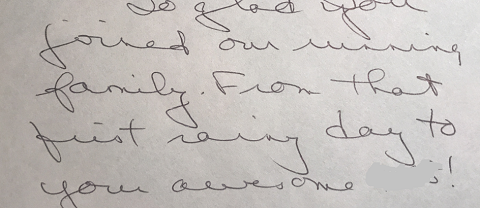 So glad you
joined our running
family. From that
first rainy day to
your awesome